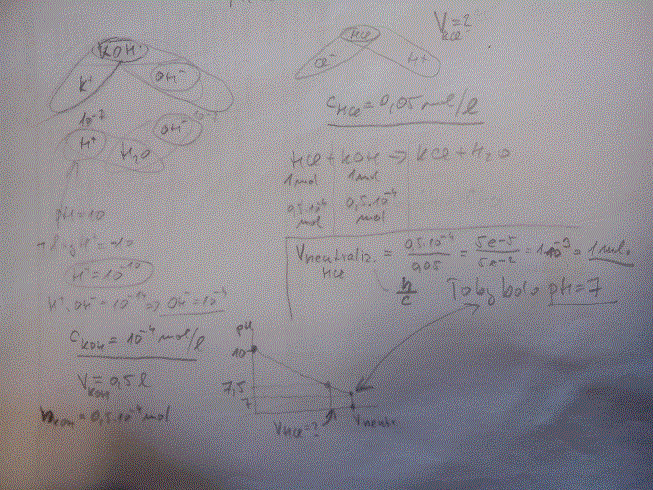 KOH
K⁺
OH⁻
10⁻⁷
H⁺
H₂O
OH⁻ 10⁻⁷
pH=10
-log H⁺=-10
H⁺=10⁻¹⁰
H⁺·OH⁻=10⁻¹⁴ => OH⁻=10⁻⁴
C_KOH = 10⁻⁴ mol/l
V_KOH = 0,5 l
n_KOH = 0,5·10⁻⁴ mol
HCl
Cl⁻
H⁺
V_HCl = ?
C_HCl = 0,05 mol/l
HCl + KOH → KCl + H₂O
1mol 1mol
0,5·10⁻⁴ mol 0,5·10⁻⁴ mol
V_neutraliz. HCl = 0,5·10⁻⁴ / 0,05 = 5e-5 / 5e-2 = 1·10⁻³ = 1ml.
n/c
To by bolo pH=7
pH
10
7,5
7
V_HCl=?
V_neutr